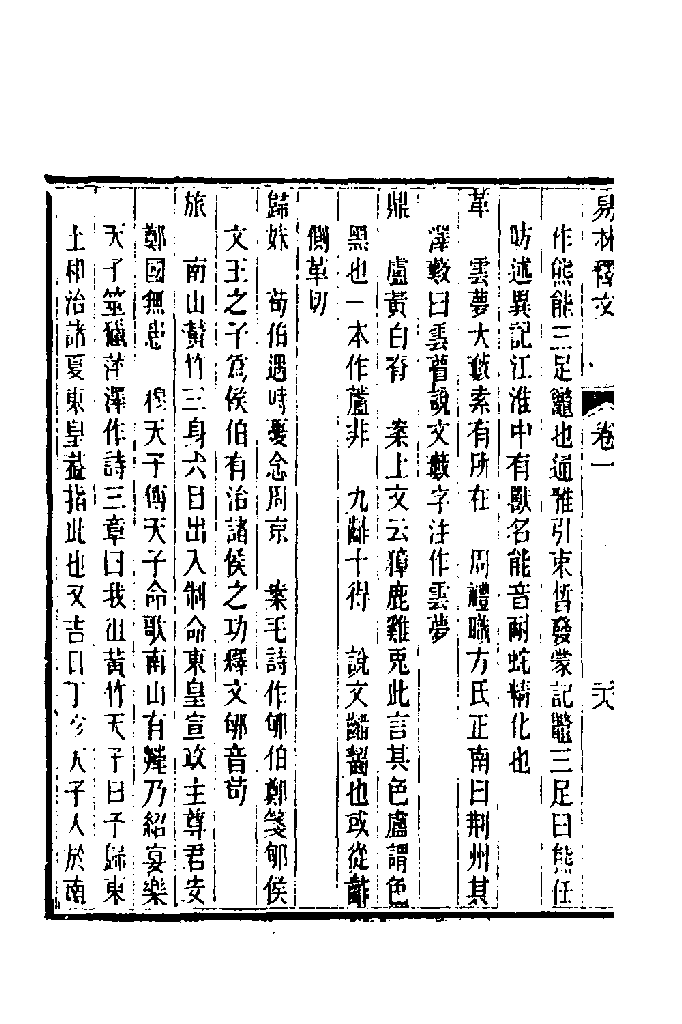 易林釋文 卷一 六
作熊能三足鼈也通雅引束晳發蒙記鼈三足曰熊任
昉述異記江淮中有獸名能音耐蛇精化也
革 雲夢大藪索有所在 周禮職方氏正南曰荆州其
澤藪曰雲瞢說文藪字注作雲夢
鼎 盧黃白脊 案上文云獐鹿雞兎此言其色盧謂色
黑也一本作蘆非 九齰十得 說文齰齧也或從齚
側革切
歸妹 荀伯遇時憂念周京 案毛詩作郇伯鄭箋郇侯
文王之子爲侯伯有治諸侯之功釋文郇音荀
旅 南山黃竹三身六目出入制命東皇宣政主尊君安
鄭國無患 穆天子傳天子命歌南山有𦽏乃紹宴樂
天子筮獵苹澤作詩三章曰我徂黃竹天子曰予歸東
土和治諸夏東皇蓋指此也又吉日丁 天子入於南